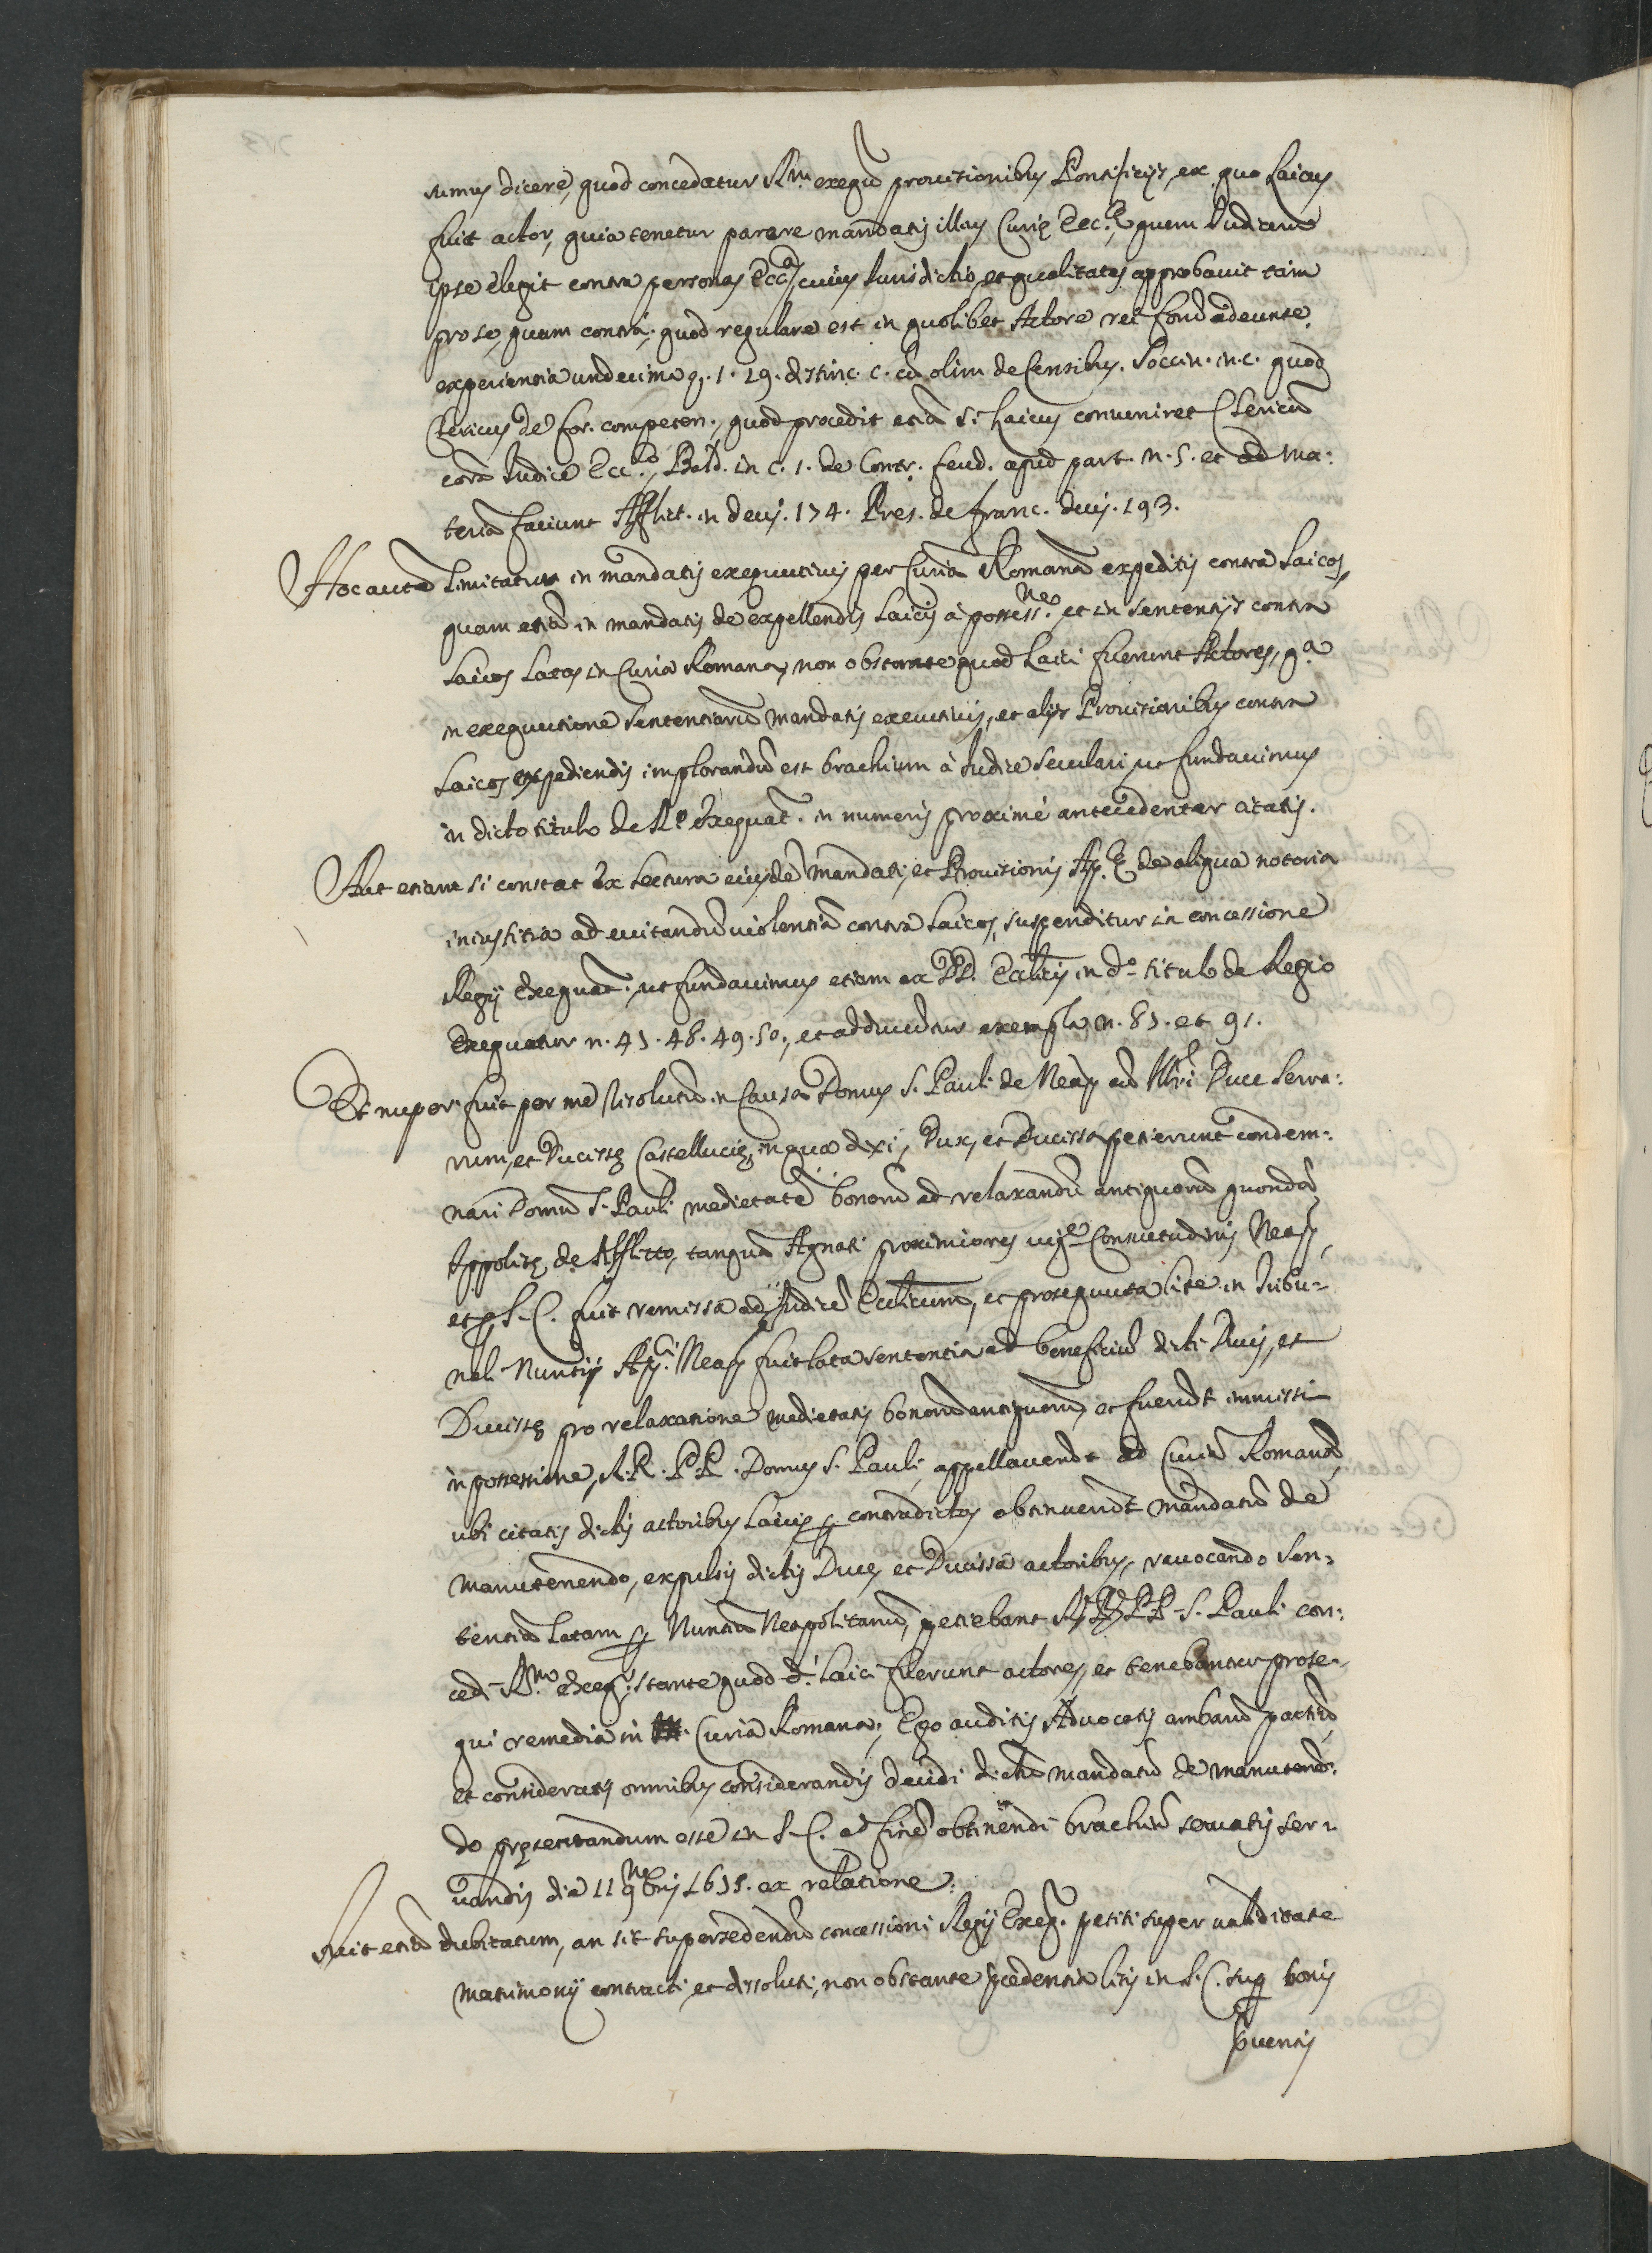 sumus dicere, quod concedatur R.m exequr̃ prouisionibus Pontificijs, ex quo Laicus
fuit actor, quia tenetur parere mandatis illius Curię Ecc.ę quem Iudicem
ipse elegit contra personas Ecc.as cuius Iurisdictio, et qualitates approbauit tam
pro se, quam contra; quod regulare est in quolibet Actore rei forũ adeunte,
experientia undecima q. 1. 29. distinc. c. cũ olim de Censibus. Soccin. in c. quod
Clericus de for. competen., quod procedit etiã si Laicus conueniret Clericũ
corã Iudice Ecc.co, Bald. in c. 1. de Contr. feud. apud part. n. 5. et ad ma:
teriã faciunt Afflict. in decis. 174. Pres. de Franc. decis. 193.
Hoc autẽ Limitatur in mandatis exequutiuis per Curiã Romanã expeditis contra Laicos,
quam etiã in mandatis de expellendis Laicis à possess.ne, et in sententijs contra
Laicos Latas in Curia Romana, non obstante quod Laici fuerunt Actores, q.a
in exequutione sententiarũ mandatis executiuis, et alijs Prouisionibus contra
Laicos expediendis implorandũ est brachium à Iudice seculari, ut fundauimus
in dicto titulo de R.o exequat. in numeris proximè antecedenter citatis.
Aut etiam si constat ex Lectura eiusdẽ mandati, et Prouisionis Ap.ę de aliqua notoria
iniustitia ad euitandũ uiolentiã contra Laicos, suspenditur in concessione
Regij exequat., ut fundauimus etiam ex DD. Ecclicis in d.o titulo de Regio
Exequatur n. 45. 48. 49. 50., et adducimus exempla n. 85. et 91.
Et nuper fuit per me resolutũ in Causa Domus S. Pauli de Neap. cũ Ill.i Duce Serra:
rum, et Ducissę Castellucię, in qua dixi, Dux, et Ducissa petierunt condem:
nari Domũ S. Pauli medietatẽ bonorũ ad relaxandũ antiquorũ quondã
Ippolitę de Afflitto, tanquã Agnati proximiores uig.e Consuetudinis Neap.,
et ꝑ S. C. fuit remissa ad Iudicẽ Ecclicum, et prosequuta lite in Tribu-
nali Nuntij Ap.ci Neap. fuit lata sententia ad beneficiũ dicti Ducis, et
Ducissę pro relaxatione medietatis bonorũ antiquorũ, et fuerũt immissi
in possessione, R. R. P. P. Domus S. Pauli appellauerũt ad Curiã Romanã,
ubi citatis dictis actoribus Laicis ꝑ contradictas obtinuerũt mandatũ de
manutenendo, expulsis dictis Duce, et Ducissa actoribus, reuocando sen:
tentiã Latam ꝑ Nuntiũ Neapolitanũ, petebant RR. PP. S. Pauli con:
cedi R.m exeq.r, stante quod d.i Laici fuerunt actores, et tenebantur prose-
qui remedia in Curia Romana; Ego auditis Aduocatis ambarũ partiũ,
et consideratis omnibus considerandis decidi dictũ mandatũ de manutenẽ:
do pręsentandum esse in S. C. ad finẽ obtinendi brachiũ seruatis ser:
uandis die 11 9bris 1655. ex relatione.
Fuit etiã dubitatum, an sit supersedendũ concessioni Regij Exeq.r petiti super ualiditate
matrimonij contracti, et dissoluti, non obstante p̃cedentia litis in S. C. sup bonis